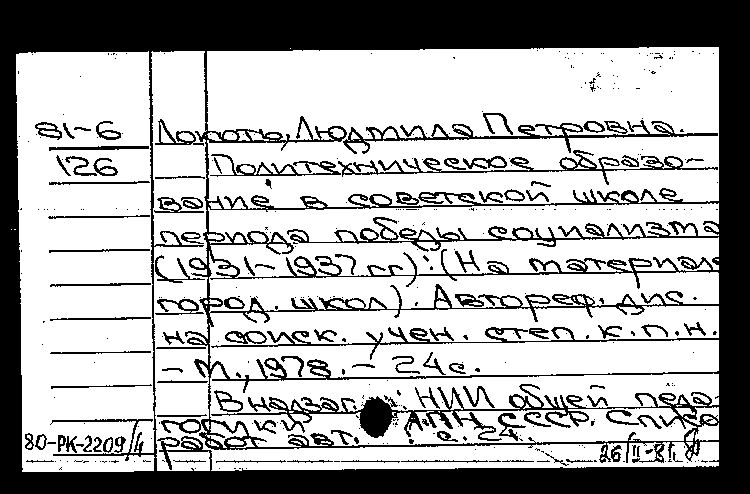 81-6 Локоть, Людмила Петровна.
126 Политехническое образо-
вание в советской школе
периода победы социализма
(1931-1937 гг): (На материале
город. школ). Автореф. дис.
на соиск. учен. степ. к.п.н.
- М., 1978. - 24 с.
В надзаг.: НИИ общей педа-
гогики АПН СССР. Списо
работ авт.: с. 24.
80-РК-2209/4
26/II-81.